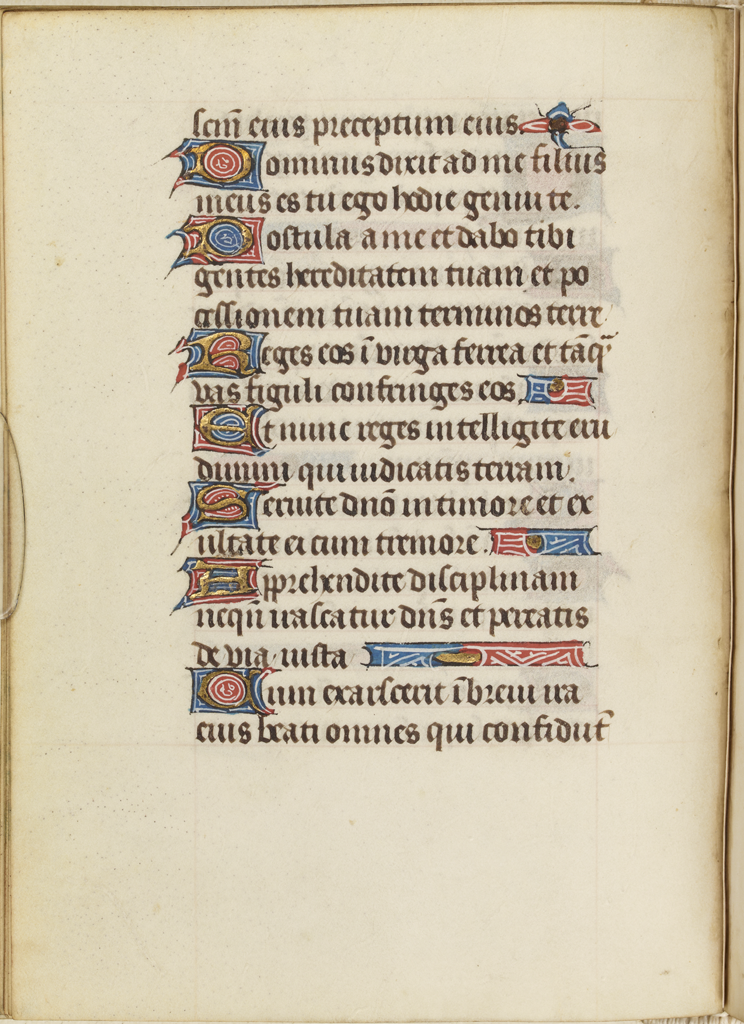 scm̄ eius preceptum eius.
Dominus dixit ad me filius
meus es tu ego hodie genui te.
Postula a me et dabo tibi
gentes hereditatem tuam et po
cessionem tuam terminos terre
Reges eos ī virga ferrea et tāqȝ
vas figuli confringes eos
Et nunc reges intelligite eru
dimini qui iudicatis terram.
Seruite dnō in timore et ex
ultate ei cum tremore.
Apprehendite disciplinam
neqū irascatur dn̄s et pereatis
de via iusta
Cum exarscerit ī breui ira
eius beati omnes qui confidūt